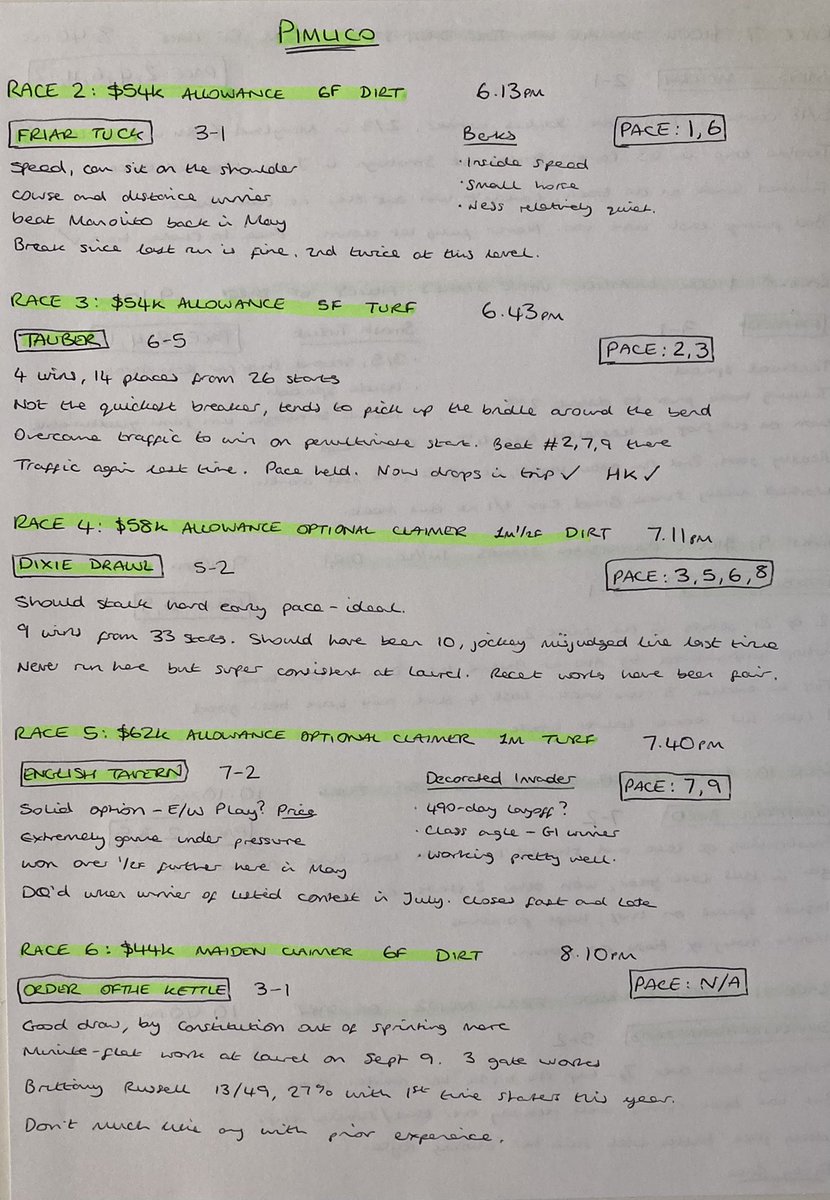 PIMLICO
RACE 2: $54K ALLOWANCE 6F DIRT 6.13PM
FRIAR TUCK 3-1
Speed, can sit on the shoulder
Course and distance winner
beat Manolito back in May
Break since last run is fine. 2nd twice at this level.
Berks
· Inside speed
· Small horse
· Ness relatively quiet.
PACE: 1,6
RACE 3: $54K ALLOWANCE 5F TURF 6.43PM
TAUBER 6-5
PACE: 2,3
4 wins, 14 places from 26 starts
Not the quickest breaker, tends to pick up the bridle around the bend
Overcame traffic to win on penultimate start. Beat #2,7,9 there
Traffic again last time. Pace held. Now drops in trip ✓ HK ✓
RACE 4: $58K ALLOWANCE OPTIONAL CLAIMER 1M 1/2F DIRT 7.11PM
DIXIE DRAWL 5-2
PACE: 3,5,6,8
Should stalk hard early pace - ideal.
9 wins from 33 starts. Should have been 10, jockey misjudged line last time
Never run here but super consistent at Laurel. Recent works have been fair.
RACE 5: $62K ALLOWANCE OPTIONAL CLAIMER 1M TURF 7.40PM
ENGLISH TAVERN 7-2
Solid option - E/W Play? Price
Extremely game under pressure
Won over 1/2F further here in May
DQ'd when winner of Listed contest in July. Closes fast and late
Decorated Invader
· 490-day layoff?
· Class angle - G1 winner
· Working pretty well.
PACE: 7,9
RACE 6: $44K MAIDEN CLAIMER 6F DIRT 8.10PM
ORDER OFTHE KETTLE 3-1
PACE: N/A
Good draw, by Constitution out of sprinting mare
Minute-flat work at Laurel on Sept 9. 3 gate works
Brittany Russell 13/49, 27% with 1st time starters this year.
Don't much like any with prior experience.